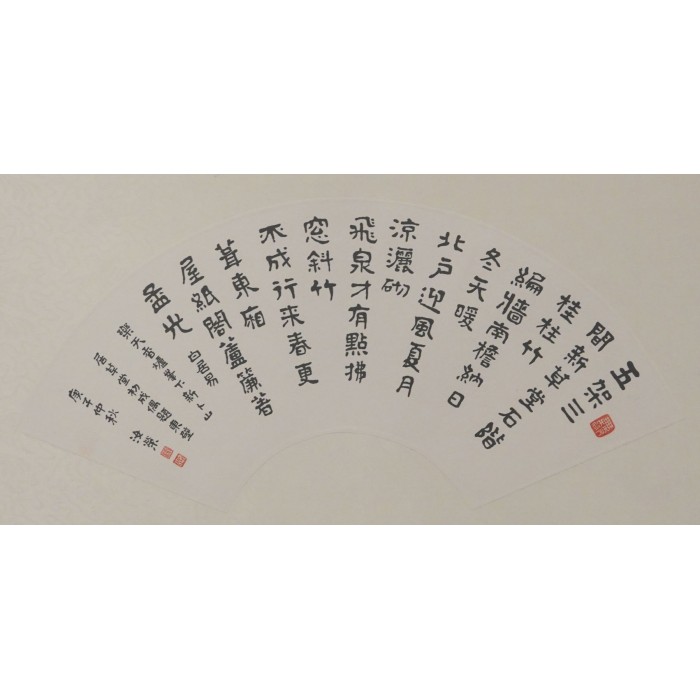 五架三
間新草堂石階
桂柱竹
編牆南檐納日
冬天暖
北戶迎風夏月
涼灑砌
飛泉才有點拂
窓斜竹
不成行来春更
葺東廂
屋紙閣蘆簾著
孟光
白居易
樂天香爐峯下新卜山
居草堂初成偶題東壁
庚子仲秋